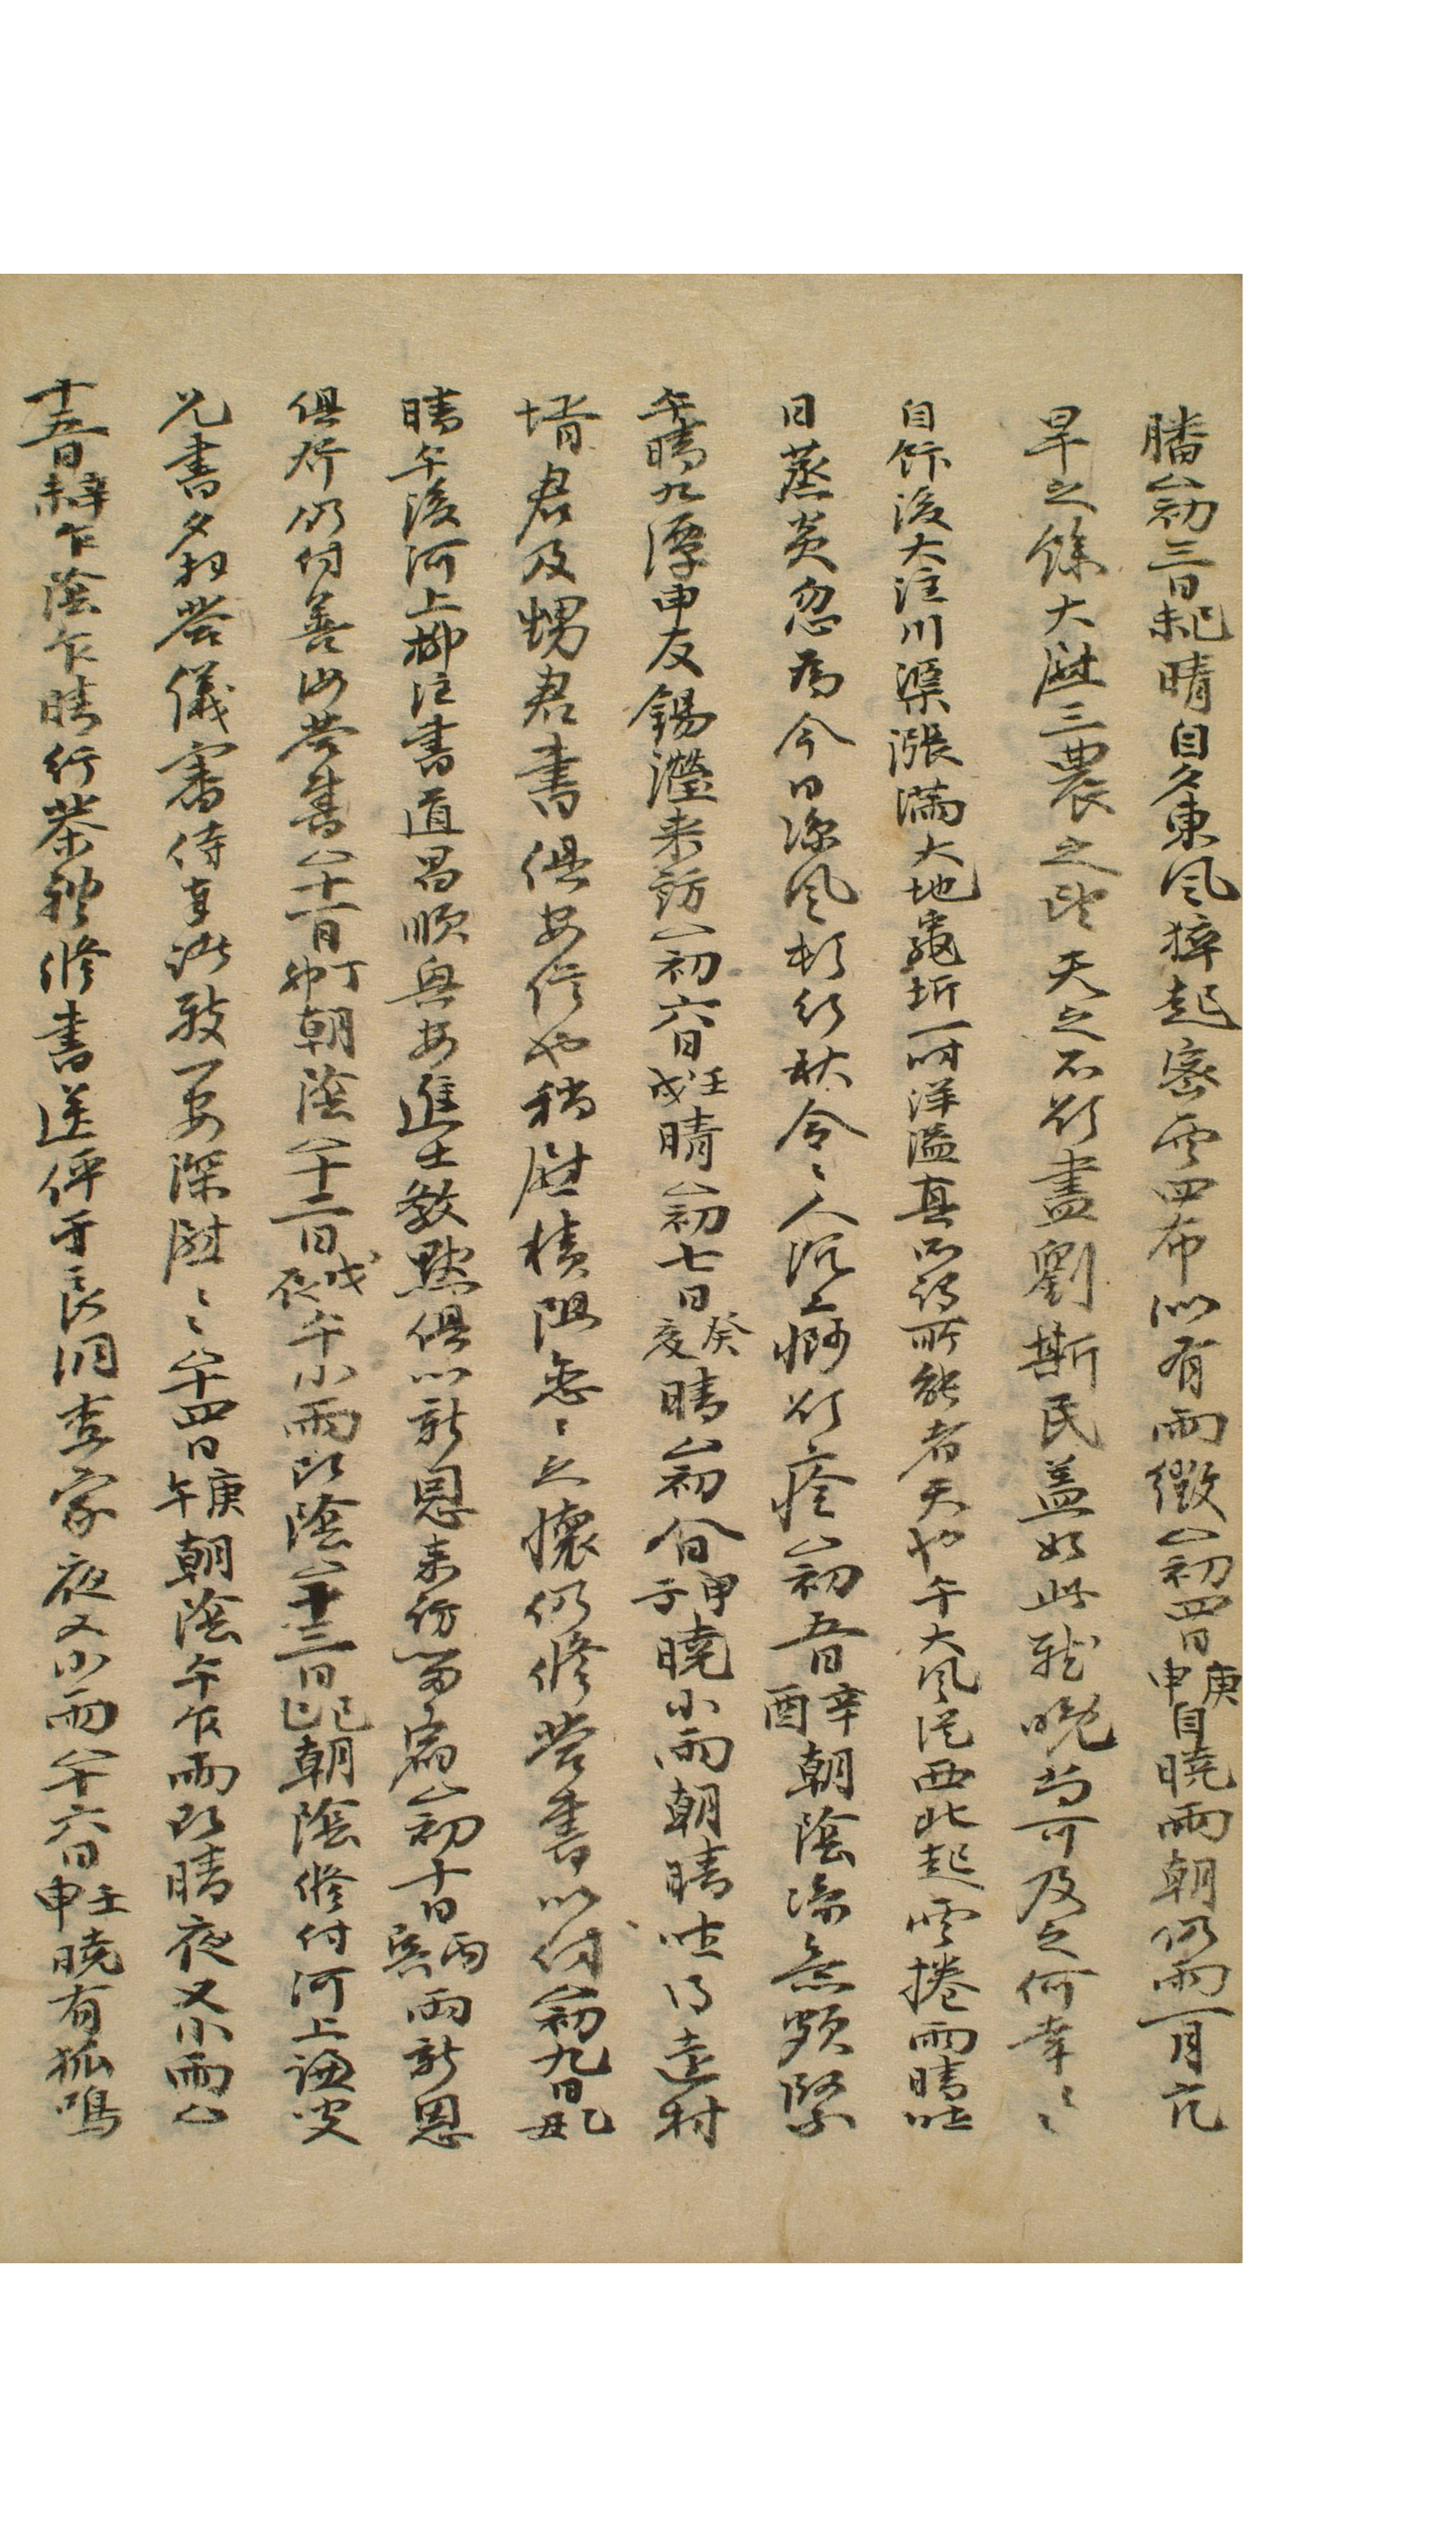 膰△初三日己未晴自夕東風猝起密雲四布似有雨徵△初四日庚申自曉雨朝仍雨一月亢
旱之餘大慰三農之望天之不欲盡劉斯民盖如此哉晩尚可及之何幸〻
自飰後大注川渠漲滿大地龜坼一時洋溢真不得所能者天也午大風從西北起雲捲雨晴昨
日蒸炎忽爲今日凉風杉紵秋令〻人沉痾欲痊△初五日辛酉朝陰凉氣頗緊
午晴九潭申友錫瀅来訪△初六日壬戌晴△初七日癸亥晴△初八日甲子曉小雨朝晴昨得遠村
壻君及甥君書俱安信也稍慰積阻悉〻之懷仍修答書以付△初九日乙丑
晴午後河上柳注書道昌順與安進士教默俱以新恩来訪留宿△初十日丙寅雨新恩
俱行仍付善山答書△十一日丁卯朝陰△十二日戊辰午小雨即陰△十三日己巳朝陰修付河上謙叟
兄書夕知答儀審侍事諸致一安深慰〻△十四日庚午朝陰午乍雨即晴夜又小雨△
十五日辛未乍陰乍晴行茶禮修書送伻于良洞查家夜又小雨△十六日壬申曉有狐鳴